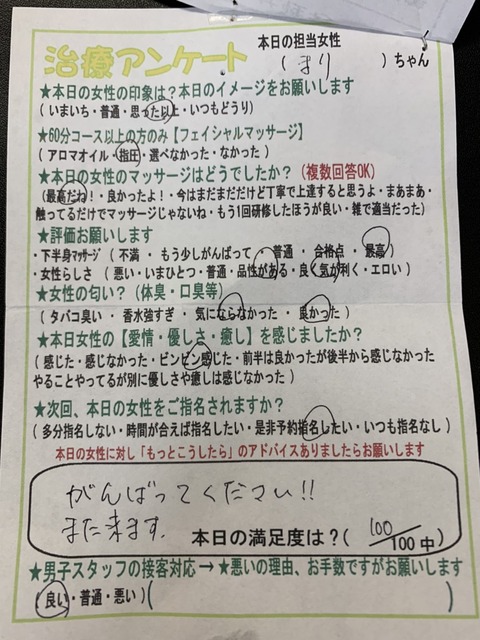 本日の担当女性
治療アンケート ( まり )ちゃん
★本日の女性の印象は？本日のイメージをお願いします
( いまいち・普通・思った以上・いつもどうり)
★60分コース以上の方のみ【フェイシャルマッサージ】
( アロマオイル・指圧・選べなかった・なかった )
★本日の女性のマッサージはどうでしたか？(複数回答OK)
(最高だね！・良かったよ！・今はまだまだだけど丁寧で上達すると思うよ・まあまあ・
触ってるだけでマッサージじゃないね・もう1回研修したほうが良い・雑で適当だった)
★評価お願いします
・下半身マッサージ ( 不満 ・ もう少しがんばって ・ 普通 ・ 合格点 ・ 最高 )
・女性らしさ ( 悪い・いまひとつ・普通・品性がある・良く気が利く・エロい )
★女性の匂い？(体臭・口臭等)
( タバコ臭い ・ 香水強すぎ ・ 気にならなかった ・ 良かった )
★本日女性の【愛情・優しさ・癒し】を感じましたか？
(感じた・感じなかった・ビンビン感じた・前半は良かったが後半から感じなかった
やることやってるが別に優しさや癒しは感じなかった )
★次回、本日の女性をご指名されますか？
(多分指名しない・時間が合えば指名したい・是非予約指名したい・いつも指名なし )
本日の女性に対し「もっとこうしたら」のアドバイスありましたらお願いします
がんばってください!!
また来ます.
本日の満足度は？( 100/100中)
★男子スタッフの接客対応 → ★悪いの理由、お手数ですがお願いします
(良い・普通・悪い) ( )